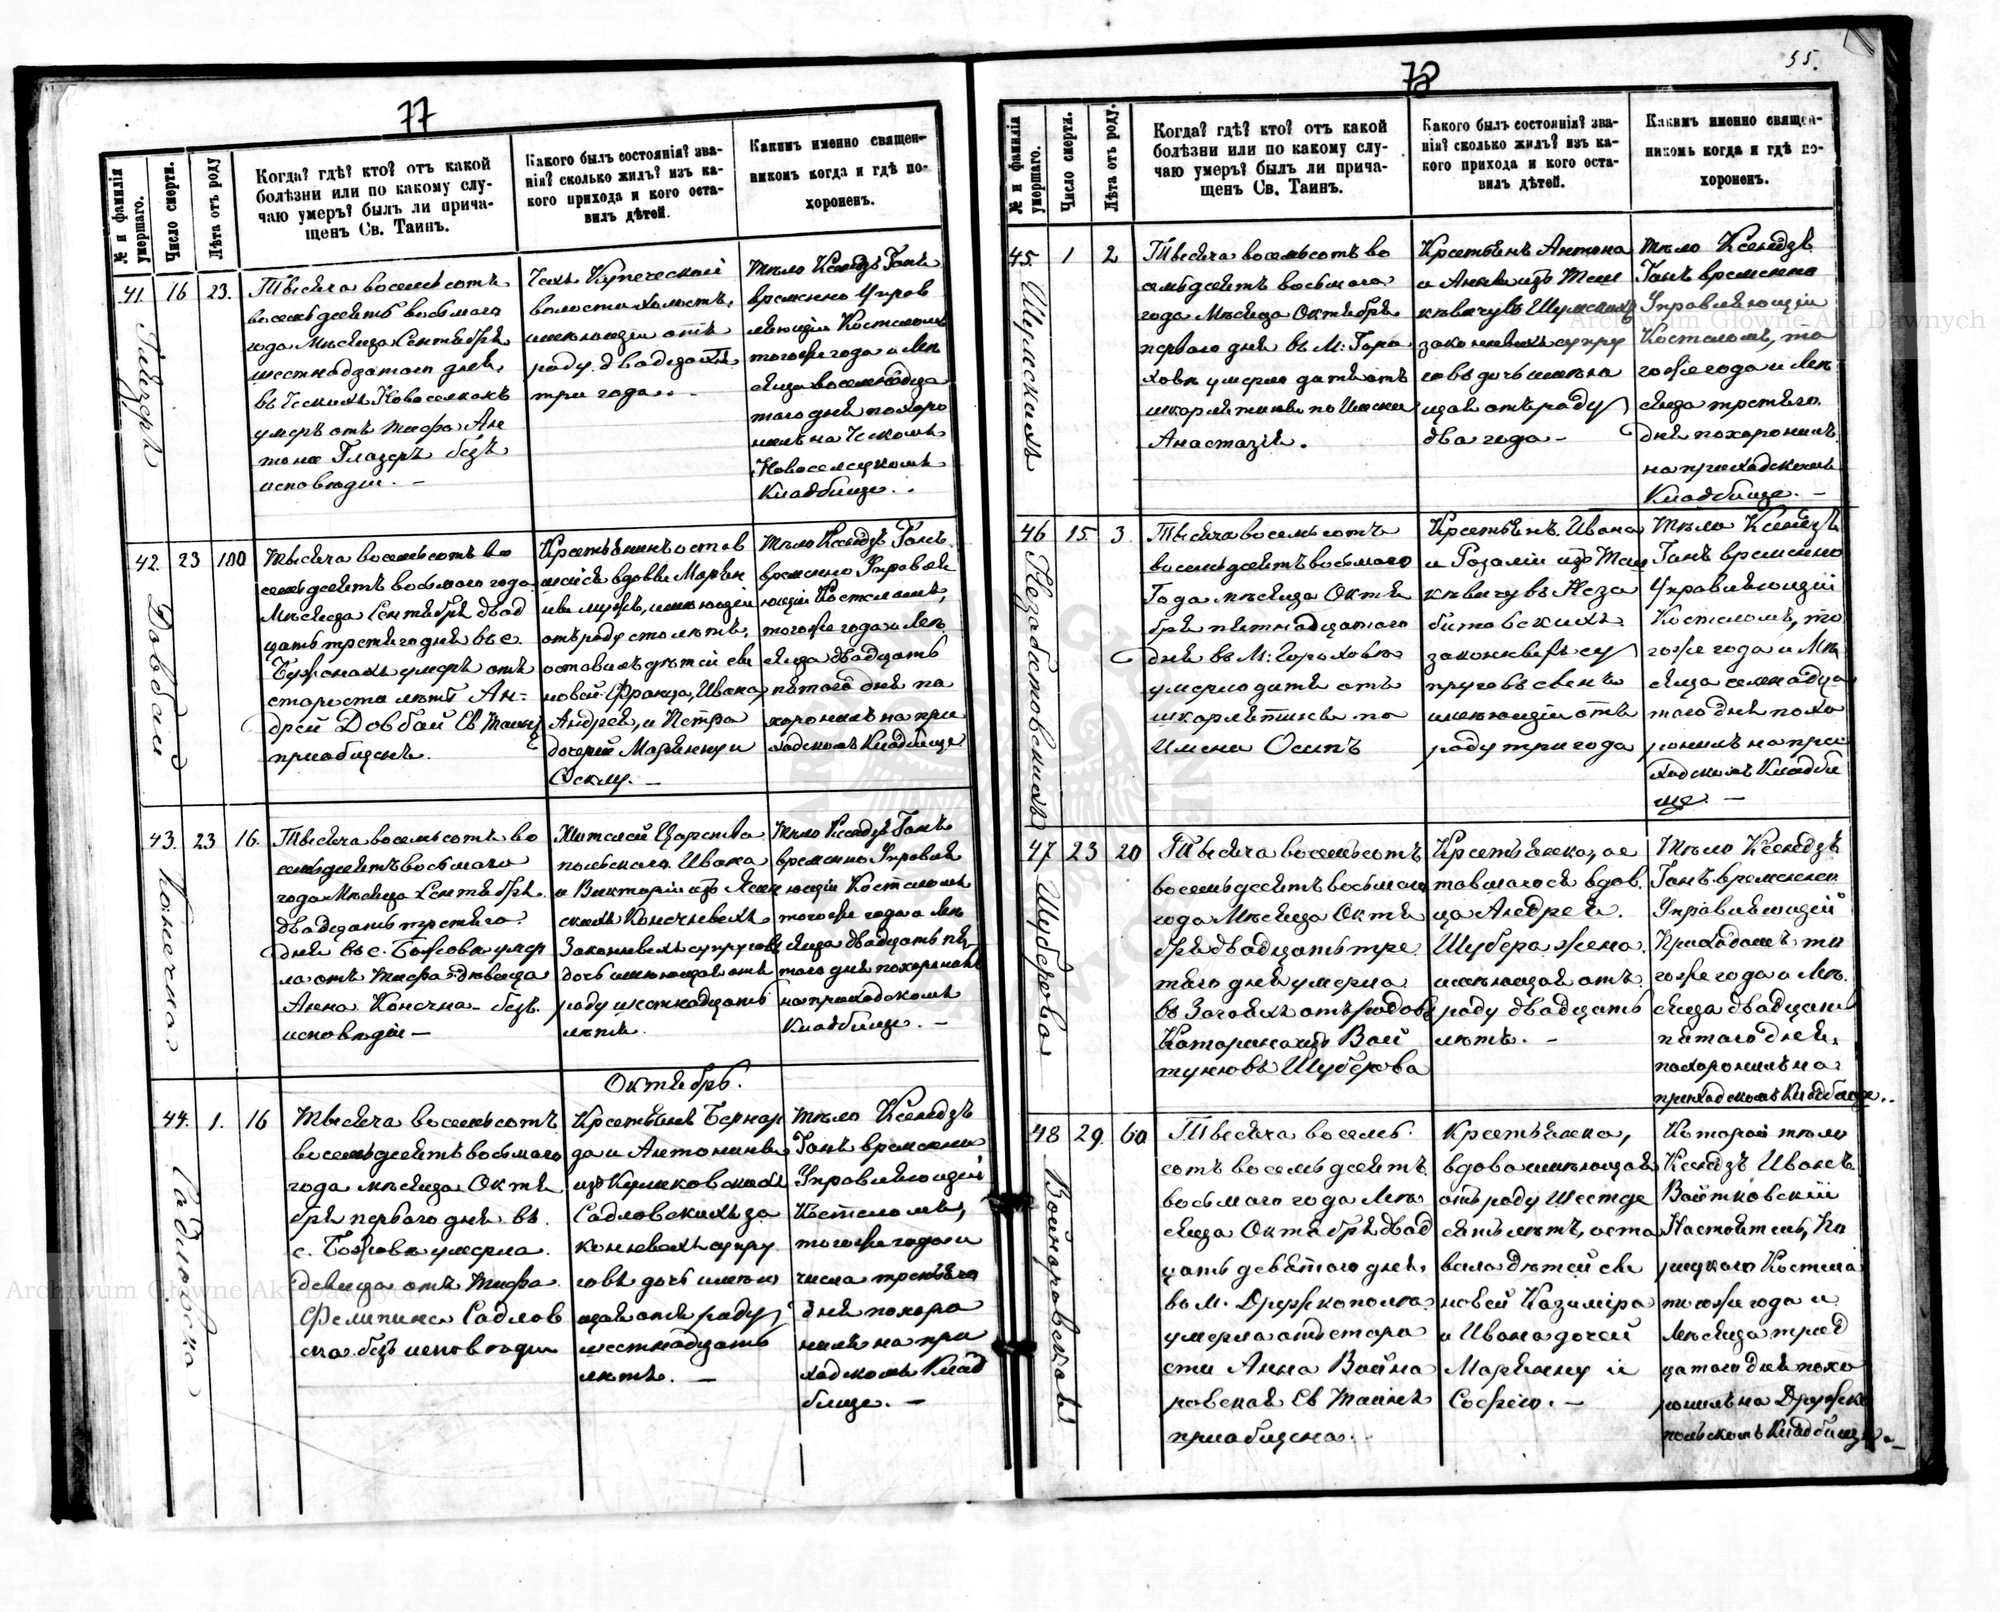 77
№ и фамилія умершаго.
Число смерти.
Лѣта отъ роду
Когда? гдѣ? кто? отъ какой
болѣзни или по какому слу-
чаю умеръ? былъ ли прича-
щенъ Св. Таинъ.
Какого былъ состоянія? зва-
нія? сколько жилъ? изъ ка-
кого прихода и кого оста-
вилъ дѣтей.
Какимъ именно священ-
никомъ когда и гдѣ по-
хороненъ.
41.
16
23.
Тысяча восемьсотъ
восемьдесятъ восьмого
года Мѣсяца Сентября
шестнадцатаго дня,
въ Ческихъ Новоселкахъ
умеръ отъ тифа Ан
тонъ Глазеръ безъ
исповѣди. —
Чехъ Купеческой
волости холостъ,
имеющій отъ
роду двадцать
три года. —
Тѣло Ксендзъ Ганъ
временно Управ
ляющій Костеломъ
тогоже года и Мѣ
сяца восемнадца
таго дня похоро
нилъ на Ческомъ
Новоселецкомъ
Кладбище.
42.
23
100
Довбай
Тысяча восемьсотъ во
семьдесятъ восьмого года
Мѣсяца Сентября двад
цать третяго дня въ с.
умеръ отъ
старости лѣтъ Ан-
дрей Довбай Св Таинъ
приобщенъ.
Крестьянинъ остав
шейся вдовы Марьян
ны мужъ, имеющій
отъ роду сто лѣтъ,
оставилъ дѣтей сы
новей Франца, Ивана,
Андрея, и Петра
дочерей Марьянну и
Феклу. —
Тѣло Ксендзъ Ганъ
временно Управля
ющій Костеломъ,
тогоже года и Мѣ
сяца двадцать
пятого дня по
хоронилъ на при
ходскомъ Кладбище
43.
23
16.
Конечна
Тысяча восемьсотъ во
семьдесятъ восьмого
года Мѣсяца Сентября
двадцать третяго
дня въ с. Божовки умер
ла отъ тифа дѣвица
Анна Конечна безъ
исповѣди —
Жителей Царства
польскаго Ивана
и Викторіи изъ
Конечныхъ
Законныхъ супруговъ
дочь имеющая отъ
роду шестнадцать
лѣтъ.
Тѣло Ксендзъ Ганъ
временно Управля
ющій Костеломъ
тогоже года и Мѣ
сяца двадцать пя
того дня похоронилъ
на приходскомъ
Кладбище. —
Октябрь.
44.
1.
16
Садловска
Тысяча восемьсотъ
восемьдесятъ восьмого
года мѣсяца Октя
бря первого дня въ
с. Божовки умерла
дѣвица отъ тифа
Фелипина Садлов
ска безъ исповѣди
Крестьянъ Бернар
да и Антонины
изъ Куликовскихъ
Садловскихъ за
конныхъ супру
говъ дочь имею
щая отъ роду
шестнадцать
лѣтъ. —
Тѣло Ксендзъ
Ганъ временно
Управляющій
Костеломъ,
тогоже года и
числа третяго
дня похоро
нилъ на при
ходскомъ Клад
бище. —
78
55.
№ и фамилія умершаго.
Число смерти.
Лѣта отъ роду.
Когда? гдѣ? кто? отъ какой
болѣзни или по какому слу-
чаю умеръ? былъ ли прича-
щенъ Св. Таинъ.
Какого былъ состоянія? зва-
нія? сколько жилъ? изъ ка-
кого прихода и кого оста-
вилъ дѣтей.
Какимъ именно священ-
никомъ когда и гдѣ по-
хороненъ.
45.
1
2
Шумскихъ
Тысяча восемьсотъ во
семьдесятъ восьмого
года Мѣсяца Октября
первого дня въ М: Горо
ховѣ умерло дитя отъ
шкарлятины по Имени
Анастазія.
Крестьянъ Антона
и Анны изъ Тим
кевичувъ Шумскихъ
законныхъ супру
говъ дочь имѣю
щая отъ роду
два года —
Тѣло Ксендзъ
Ганъ временно
Управляющій
Костеломъ, то
гоже года и Мѣ
сяца третяго
дня похоронилъ
на приходскомъ
Кладбище. —
46
15
3.
Незабитовскихъ
Тысяча восемьсотъ
восемьдесятъ восьмого
Года мѣсяца Октя
бря пятнадцатого
дня въ М: Гороховѣ
умерло дитя отъ
шкарлятины по
Имени Осипъ
Крестьянъ Ивана
и Розаліи изъ Тим
кевичувъ Неза
битовскихъ
законныхъ су
пруговъ сынъ
имеющій отъ
роду три года
Тѣло Ксендзъ
Ганъ временно
Управляющій
Костеломъ, то
гоже года и Мѣ
сяца семнадца
таго дня похо
ронилъ на при
ходскомъ Кладби
ще —
47
23
20
Шуберова
Тысяча восемьсотъ
восемьдесятъ восьмого
года Мѣсяца Октя
бря двадцать тре
тяго дня умерла
въ отъ родовъ
Катарина изъ Вой
тукювъ Шуберова
Крестьянка, ос
тавшагося вдов
ца Андрея
Шубера жена
имеющая отъ
роду двадцать
лѣтъ. —
Тѣло Ксендзъ
Ганъ временно
Управляющій
Приходомъ то
гоже года и Мѣ
сяца двадцать
пятого дня,
похоронилъ на
приходскомъ Кладбище.
48
29.
60
Войнаровской
Тысяча восемь
сотъ восемьдесятъ
восьмого года Мѣ
сяца Октября двад
цать девятого дня,
въ М. Дружкополѣ
умерла отъ старо
сти Анна Война
ровская Св Таинъ
приобщена.
Крестьянка,
вдова имеющая
отъ роду шестьде
сятъ лѣтъ, оста
вила дѣтей сы
новей Казиміра
и Ивана дочей
Марьянну и
Софію. —
Которой тѣло
Ксендзъ Иванъ
Войтковскій
Настоятель,
Костела
тогоже года и
Мѣсяца трид
цатого дня похо
ронилъ на Дружко
польскомъ Кладбище. —
Archiwum Główne Akt Dawnych
Archiwum Główne Akt Dawnych